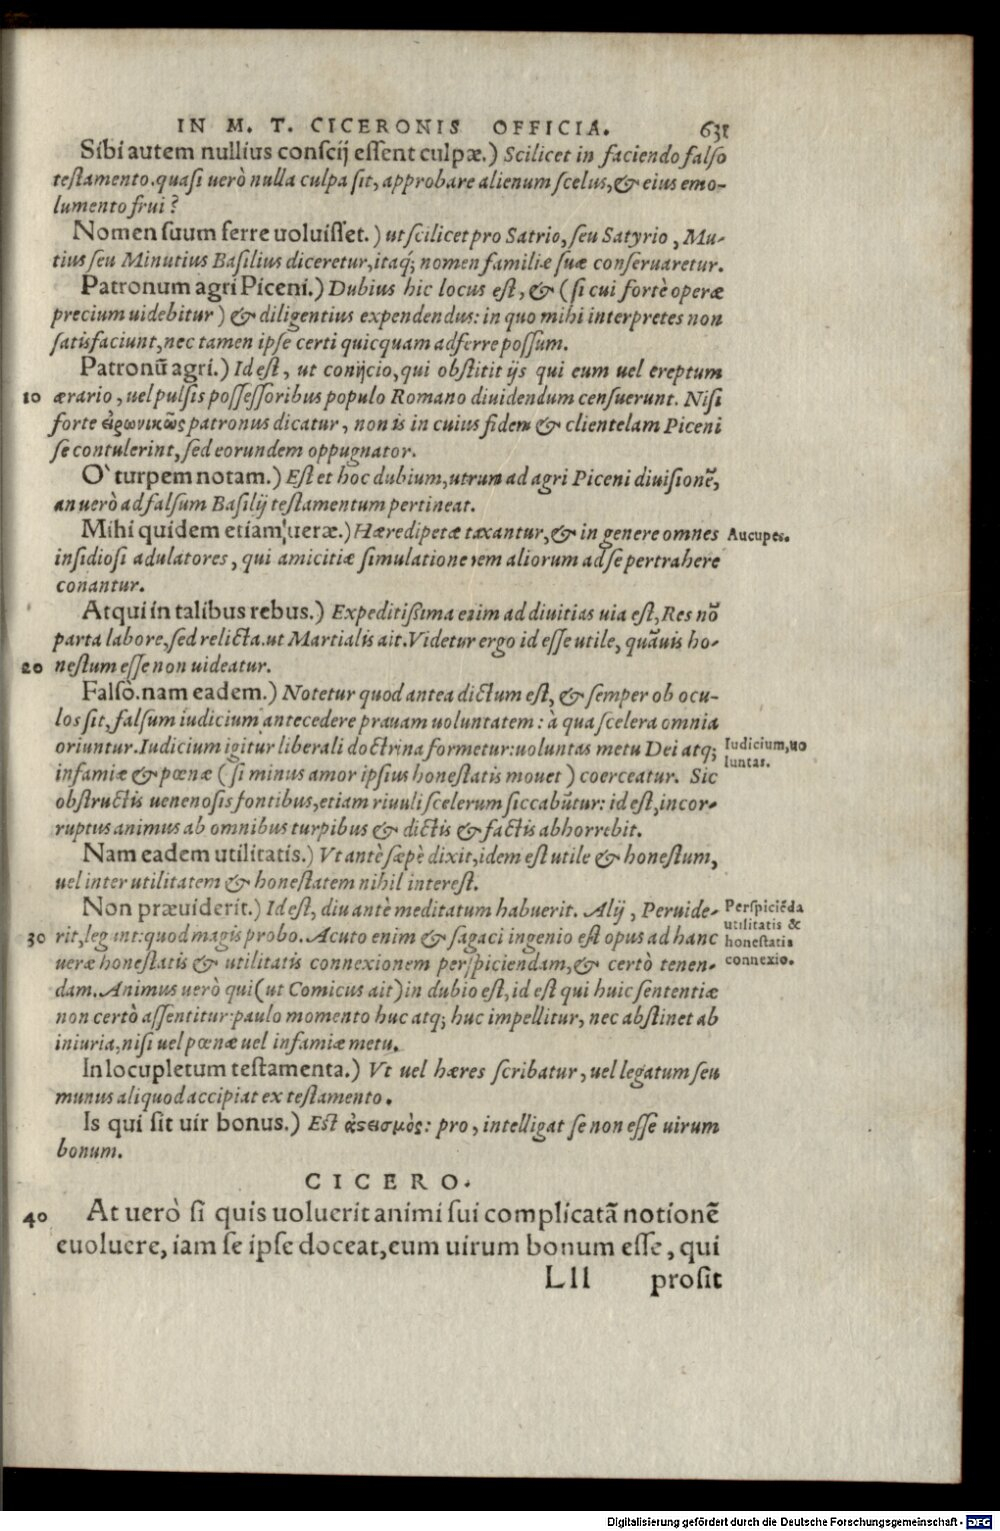 IN M. T. CICERONIS OFFICIA. 631
Sibi autem nullius conscij essent culpæ.) Scilicet in faciendo falso
testamento. quasi uerò nulla culpa sit, approbare alienum scelus, & eius emo-
lumento frui?
Nomen suum ferre uoluisset.) ut scilicet pro Satrio, seu Satyrio, Mu-
tius seu Minutius Basilius diceretur, itaq; nomen familiæ suæ conseruaretur.
Patronum agri Piceni.) Dubius hic locus est, & (si cui fortè operæ
precium uidebitur) & diligentius expendendus: in quo mihi interpretes non
satisfaciunt, nec tamen ipse certi quicquam adferre possum.
Patronũ agri.) Id est, ut conijcio, qui obstitit ijs qui eum uel ereptum
10 ærario, uel pulsis possessoribus populo Romano diuidendum censuerunt. Nisi
forte εἰρωνικῶς patronus dicatur, non is in cuius fidem & clientelam Piceni
se contulerint, sed eorundem oppugnator.
O` turpem notam.) Est et hoc dubium, utrum ad agri Piceni diuisionẽ,
an uerò ad falsum Basilij testamentum pertineat.
Mihi quidem etiam ueræ.) Hæredipetæ taxantur, & in genere omnes Aucupes.
insidiosi adulatores, qui amicitiæ simulatione rem aliorum ad se pertrahere
conantur.
Atqui in talibus rebus.) Expeditißima enim ad diuitias uia est, Res nõ
parta labore, sed relicta. ut Martialis ait. Videtur ergo id esse utile, quãuis ho-
20 nestum esse non uideatur.
Falsò. nam eadem.) Notetur quod antea dictum est, & semper ob ocu-
los sit, falsum iudicium antecedere prauam uoluntatem: à qua scelera omnia
oriuntur. Iudicium igitur liberali doctrina formetur: uoluntas metu Dei atq; Iudicium, uo
luntas.
infamiæ & pœnæ (si minus amor ipsius honestatis mouet) coerceatur. Sic
obstructis uenenosis fontibus, etiam riuuli scelerum siccabũtur: id est, incor-
ruptus animus ab omnibus turpibus & dictis & factis abhorrebit.
Nam eadem utilitatis.) Vt antè sæpè dixit, idem est utile & honestum,
uel inter utilitatem & honestatem nihil interest.
Non præuiderit.) Id est, diu antè meditatum habuerit. Alij, Peruide- Perspiciẽda
utilitatis &
30 rit, legunt: quod magis probo. Acuto enim & sagaci ingenio est opus ad hanc honestatis
ueræ honestatis & utilitatis connexionem perspiciendam, & certò tenen- connexio.
dam. Animus uerò qui (ut Comicus ait) in dubio est, id est qui huic sententiæ
non certò assentitur: paulo momento huc atq; huc impellitur, nec abstinet ab
iniuria, nisi uel pœnæ uel infamiæ metu.
In locupletum testamenta.) Vt uel hæres scribatur, uel legatum seu
munus aliquod accipiat ex testamento.
Is qui sit uir bonus.) Est ἀστεισμὸς: pro, intelligat se non esse uirum
bonum.
CICERO.
40 At uerò si quis uoluerit animi sui complicatã notionẽ
euoluere, iam se ipse doceat, eum uirum bonum esse, qui
Lll prosit
Digitalisierung gefördert durch die Deutsche Forschungsgemeinschaft - DFG